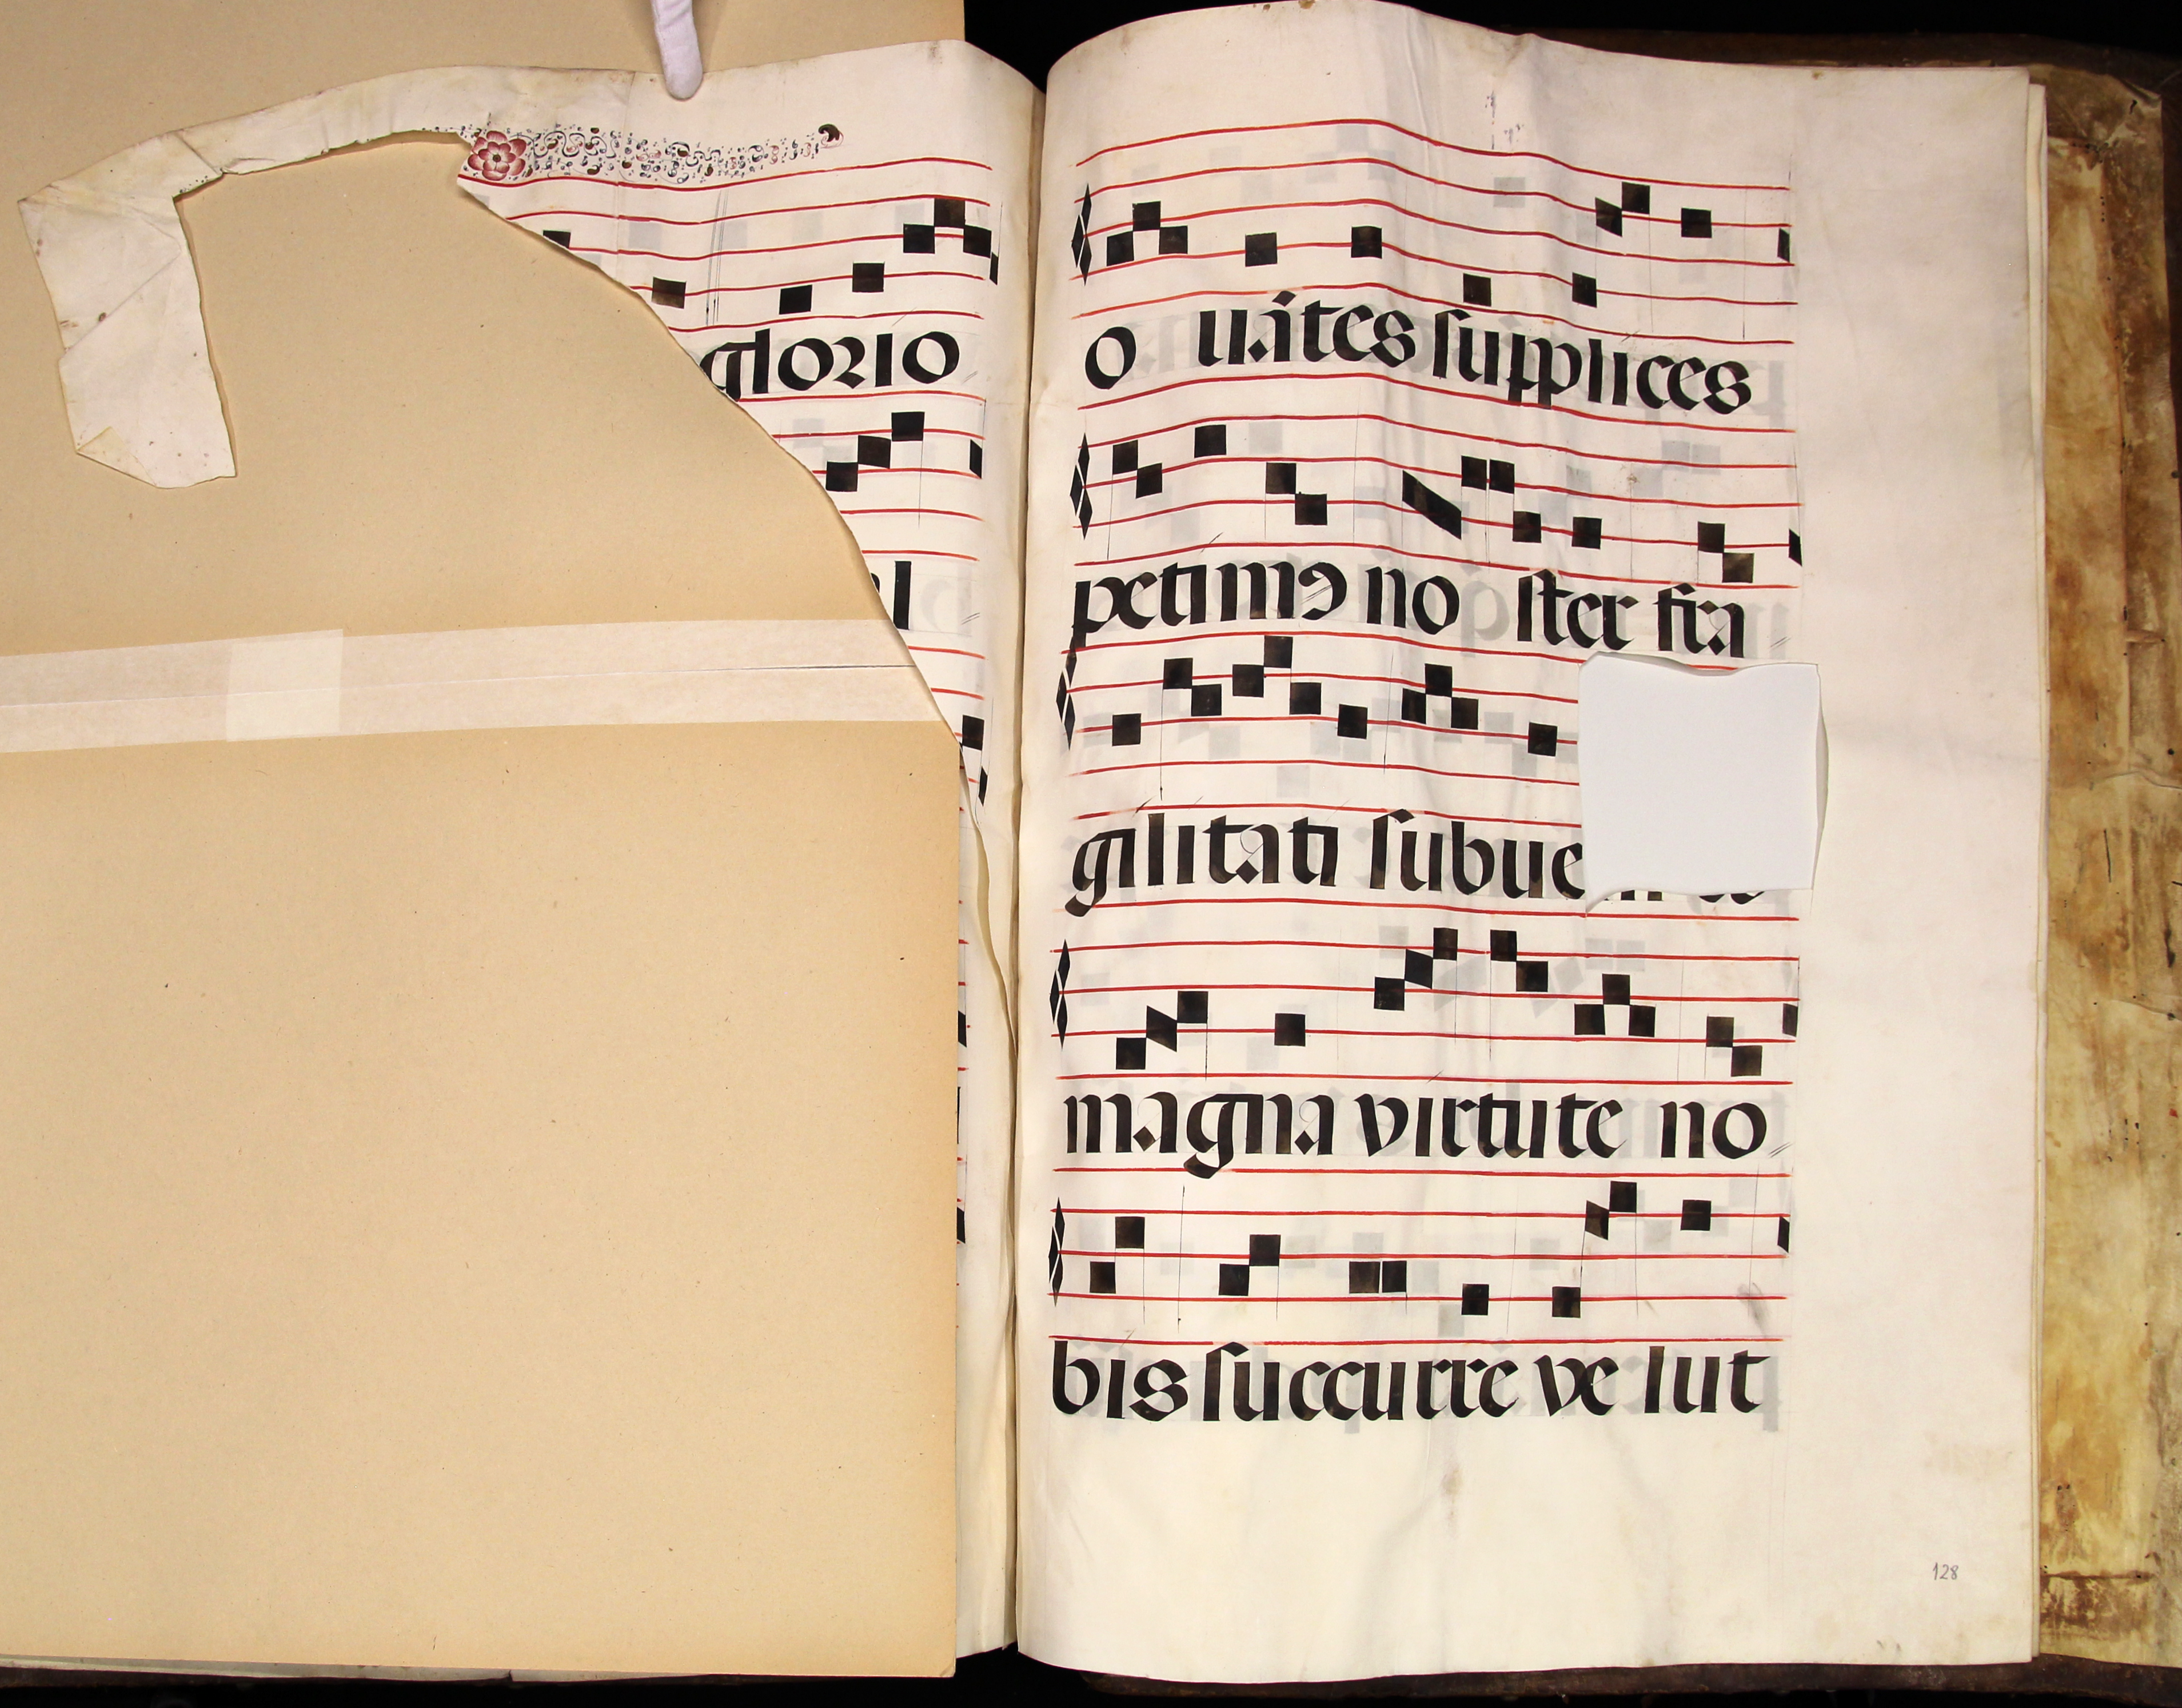 glorio
l
o uátes ſupplices
petimꝰ no ſter fra
gilitati ſubue
magna virtute no
bis ſuccurre ve lut
128